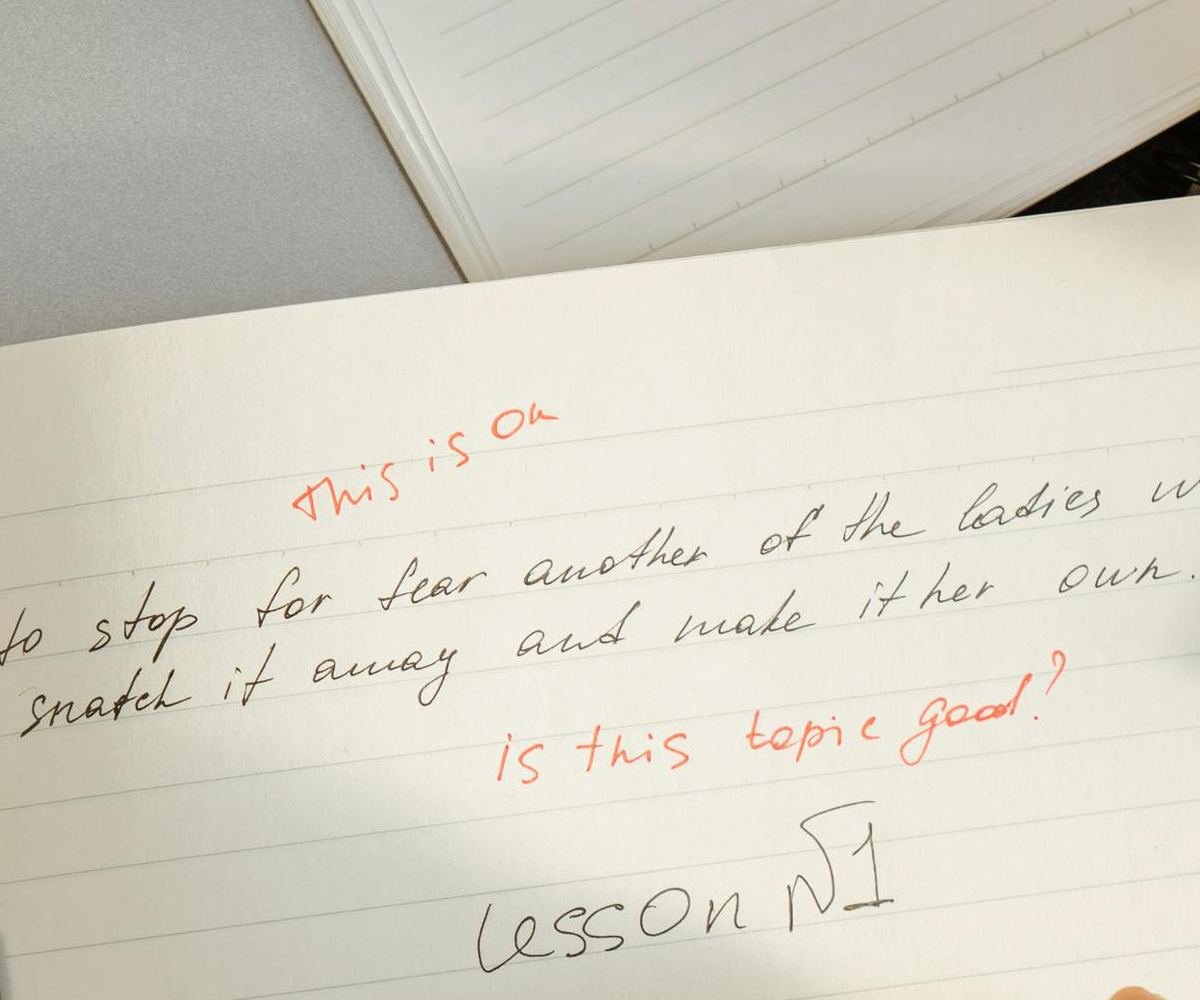 this is ok
to stop for fear another of the ladies
snatch it away and make it her own.
is this topic good?
Lesson N1